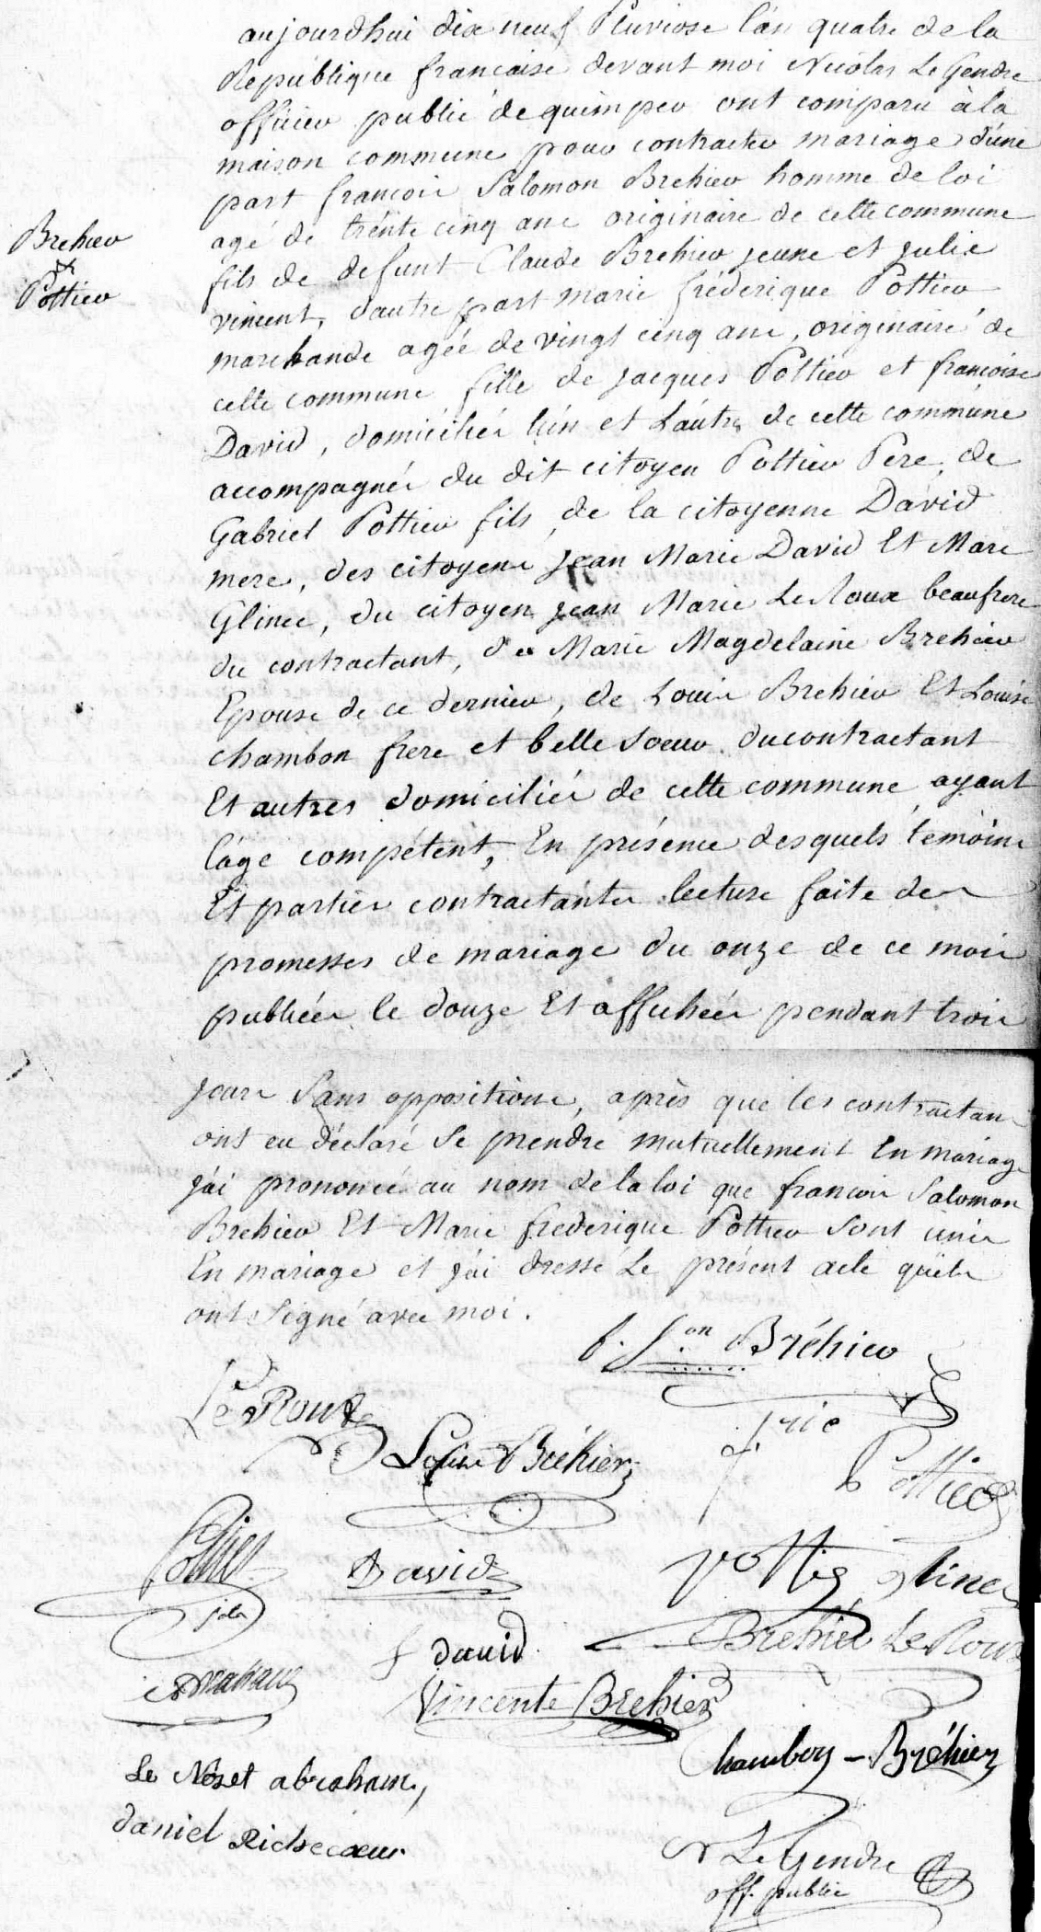 aujourdhui dix neuf Pluviose l'an quatre de la
Republique francaise devant moi Nicolas Le Gendre
officier public de quimper ont comparu à la
maison commune pour contracter mariage d'une
part francois Salomon Brehier homme de loi
Brehier
&
Pottier
agé de trente cinq ans originaire de cette commune
fils de defunt Claude Brehier jeune et julie
vincent, d'autre part marie fréderique Pottier
marchande agée de vingt cinq ans, originaire de
cette commune fille de jacques Pottier et francoise
David, domiciliés l'un et L'autre de cette commune
accompagnés du dit citoyen Pottier Pere, de
Gabriel Pottier fils, de la citoyenne David
mere, des citoyens jean Marie David Et Marc
Glinec, du citoyen jean Marie Le Roux beaufrere
du contractant, de Marie Magdelaine Brehier
Epouse de ce dernier, de Louis Brehier Et Louise
chambon frere et belle soeur du contractant
Et autres domiciliés de cette commune ayant
l'age compétent, En présence desquels temoins
Et parties contractantes lecture faite des
promesses de mariage du onze de ce mois
publiées le douze Et affichées pendant trois
jours Sans oppositions, après que les contractans
ont eu déclaré Se prendre mutuellement En mariage
j'ai prononcé au nom de la loi que francois Salomon
Brehier Et Marie frederique Pottier sont unis
En mariage et j'ai dressé Le présent acte qu'ils
ont Signé avec moi.
f. S.on Bréhier
Le Roux
Louis Bréhier
Pottier
Pottier
David
pottier glinec
f david
Bréhier Le Roux
abraham
Vincente Brehier
Chambon - Bréhier
Le Nöset abraham,
daniel Richecoeur
N Le Gendre
off. public